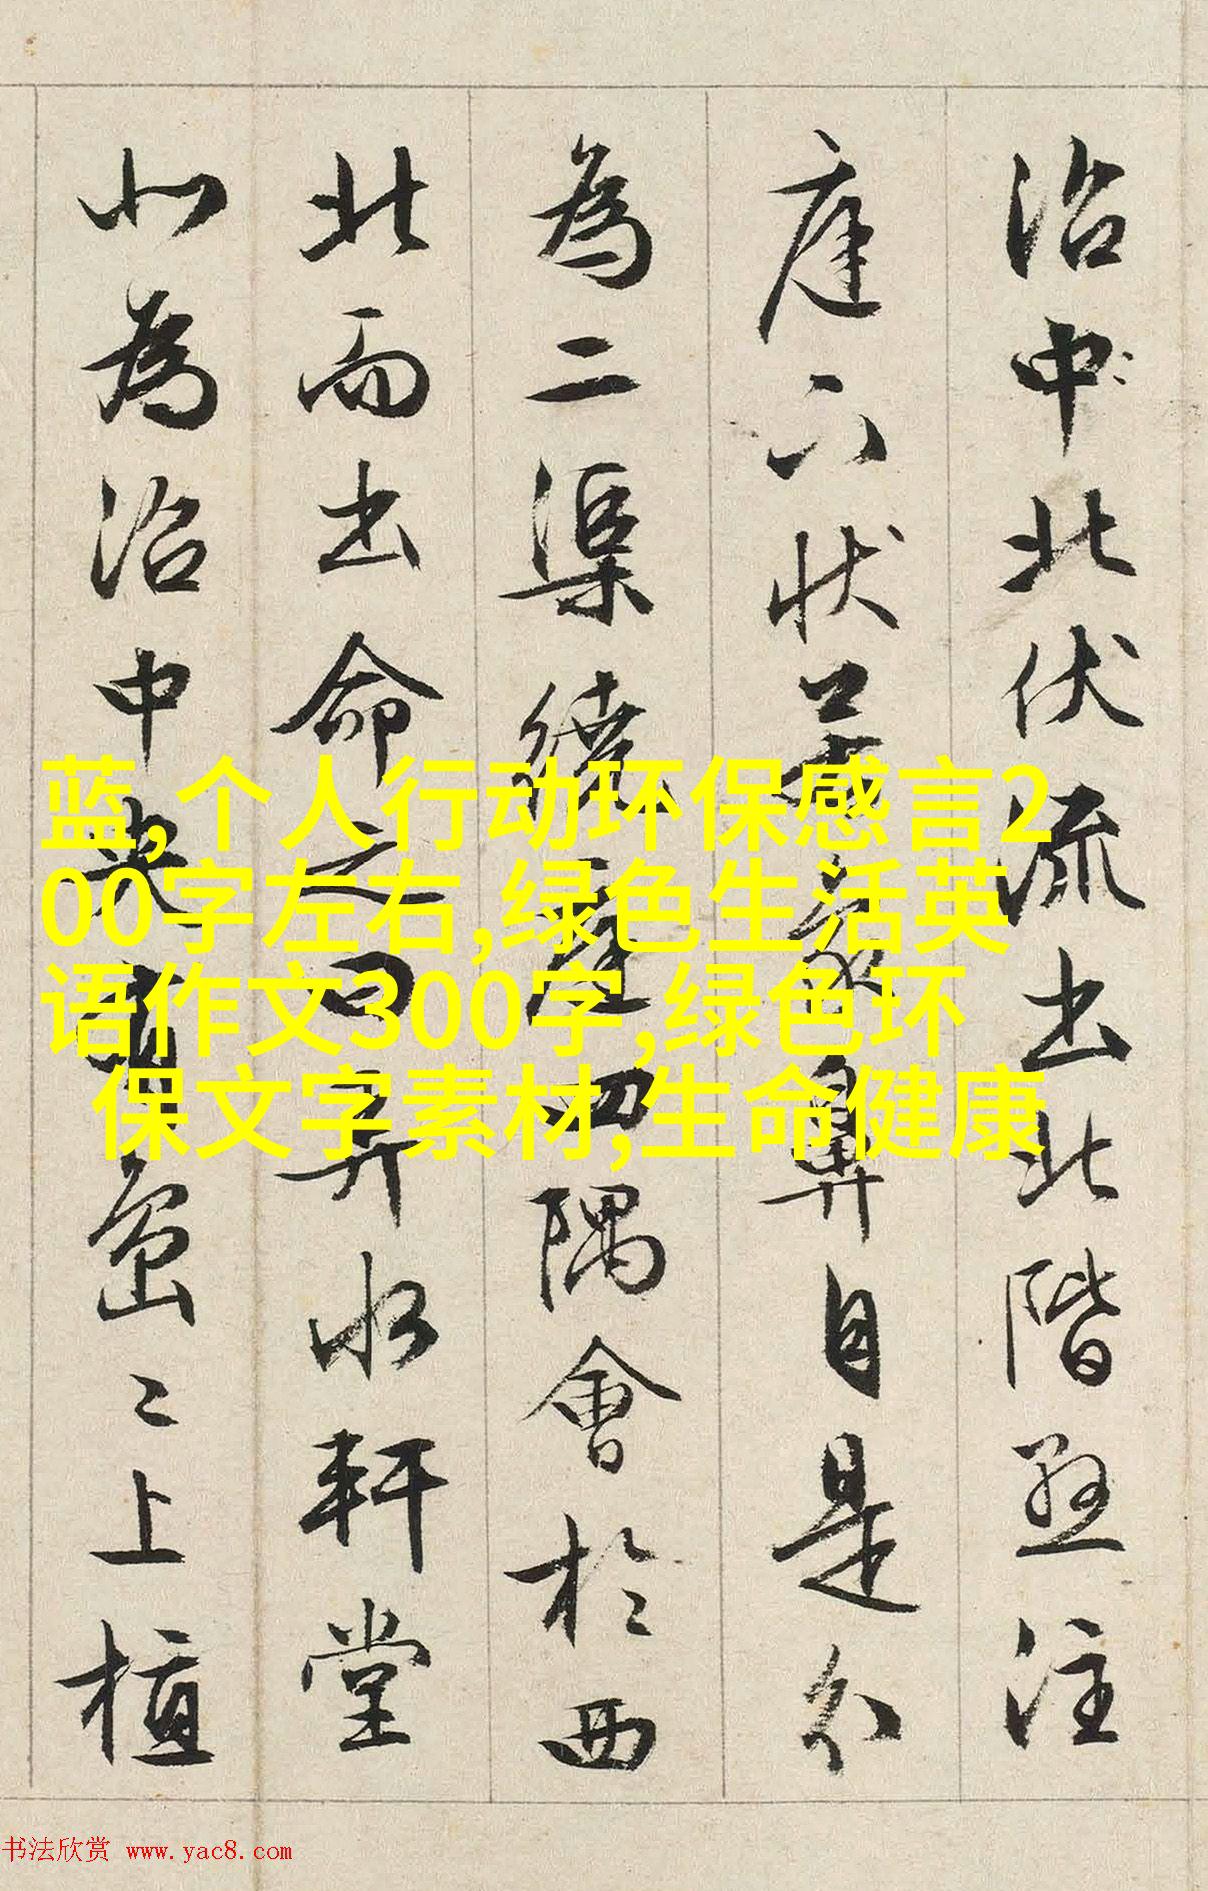 沼中北伏流出北階懸注
庭下状若象鼻自是分
為二渠繞庭四隅會於西
北而出命之曰弄水軒堂
北為沼中央有島〻上植
蓝,个人行动环保感言2
00字左右,绿色生活英
语作文300字,绿色环
保文字素材,生命健康
书法欣赏 www.yac8.com